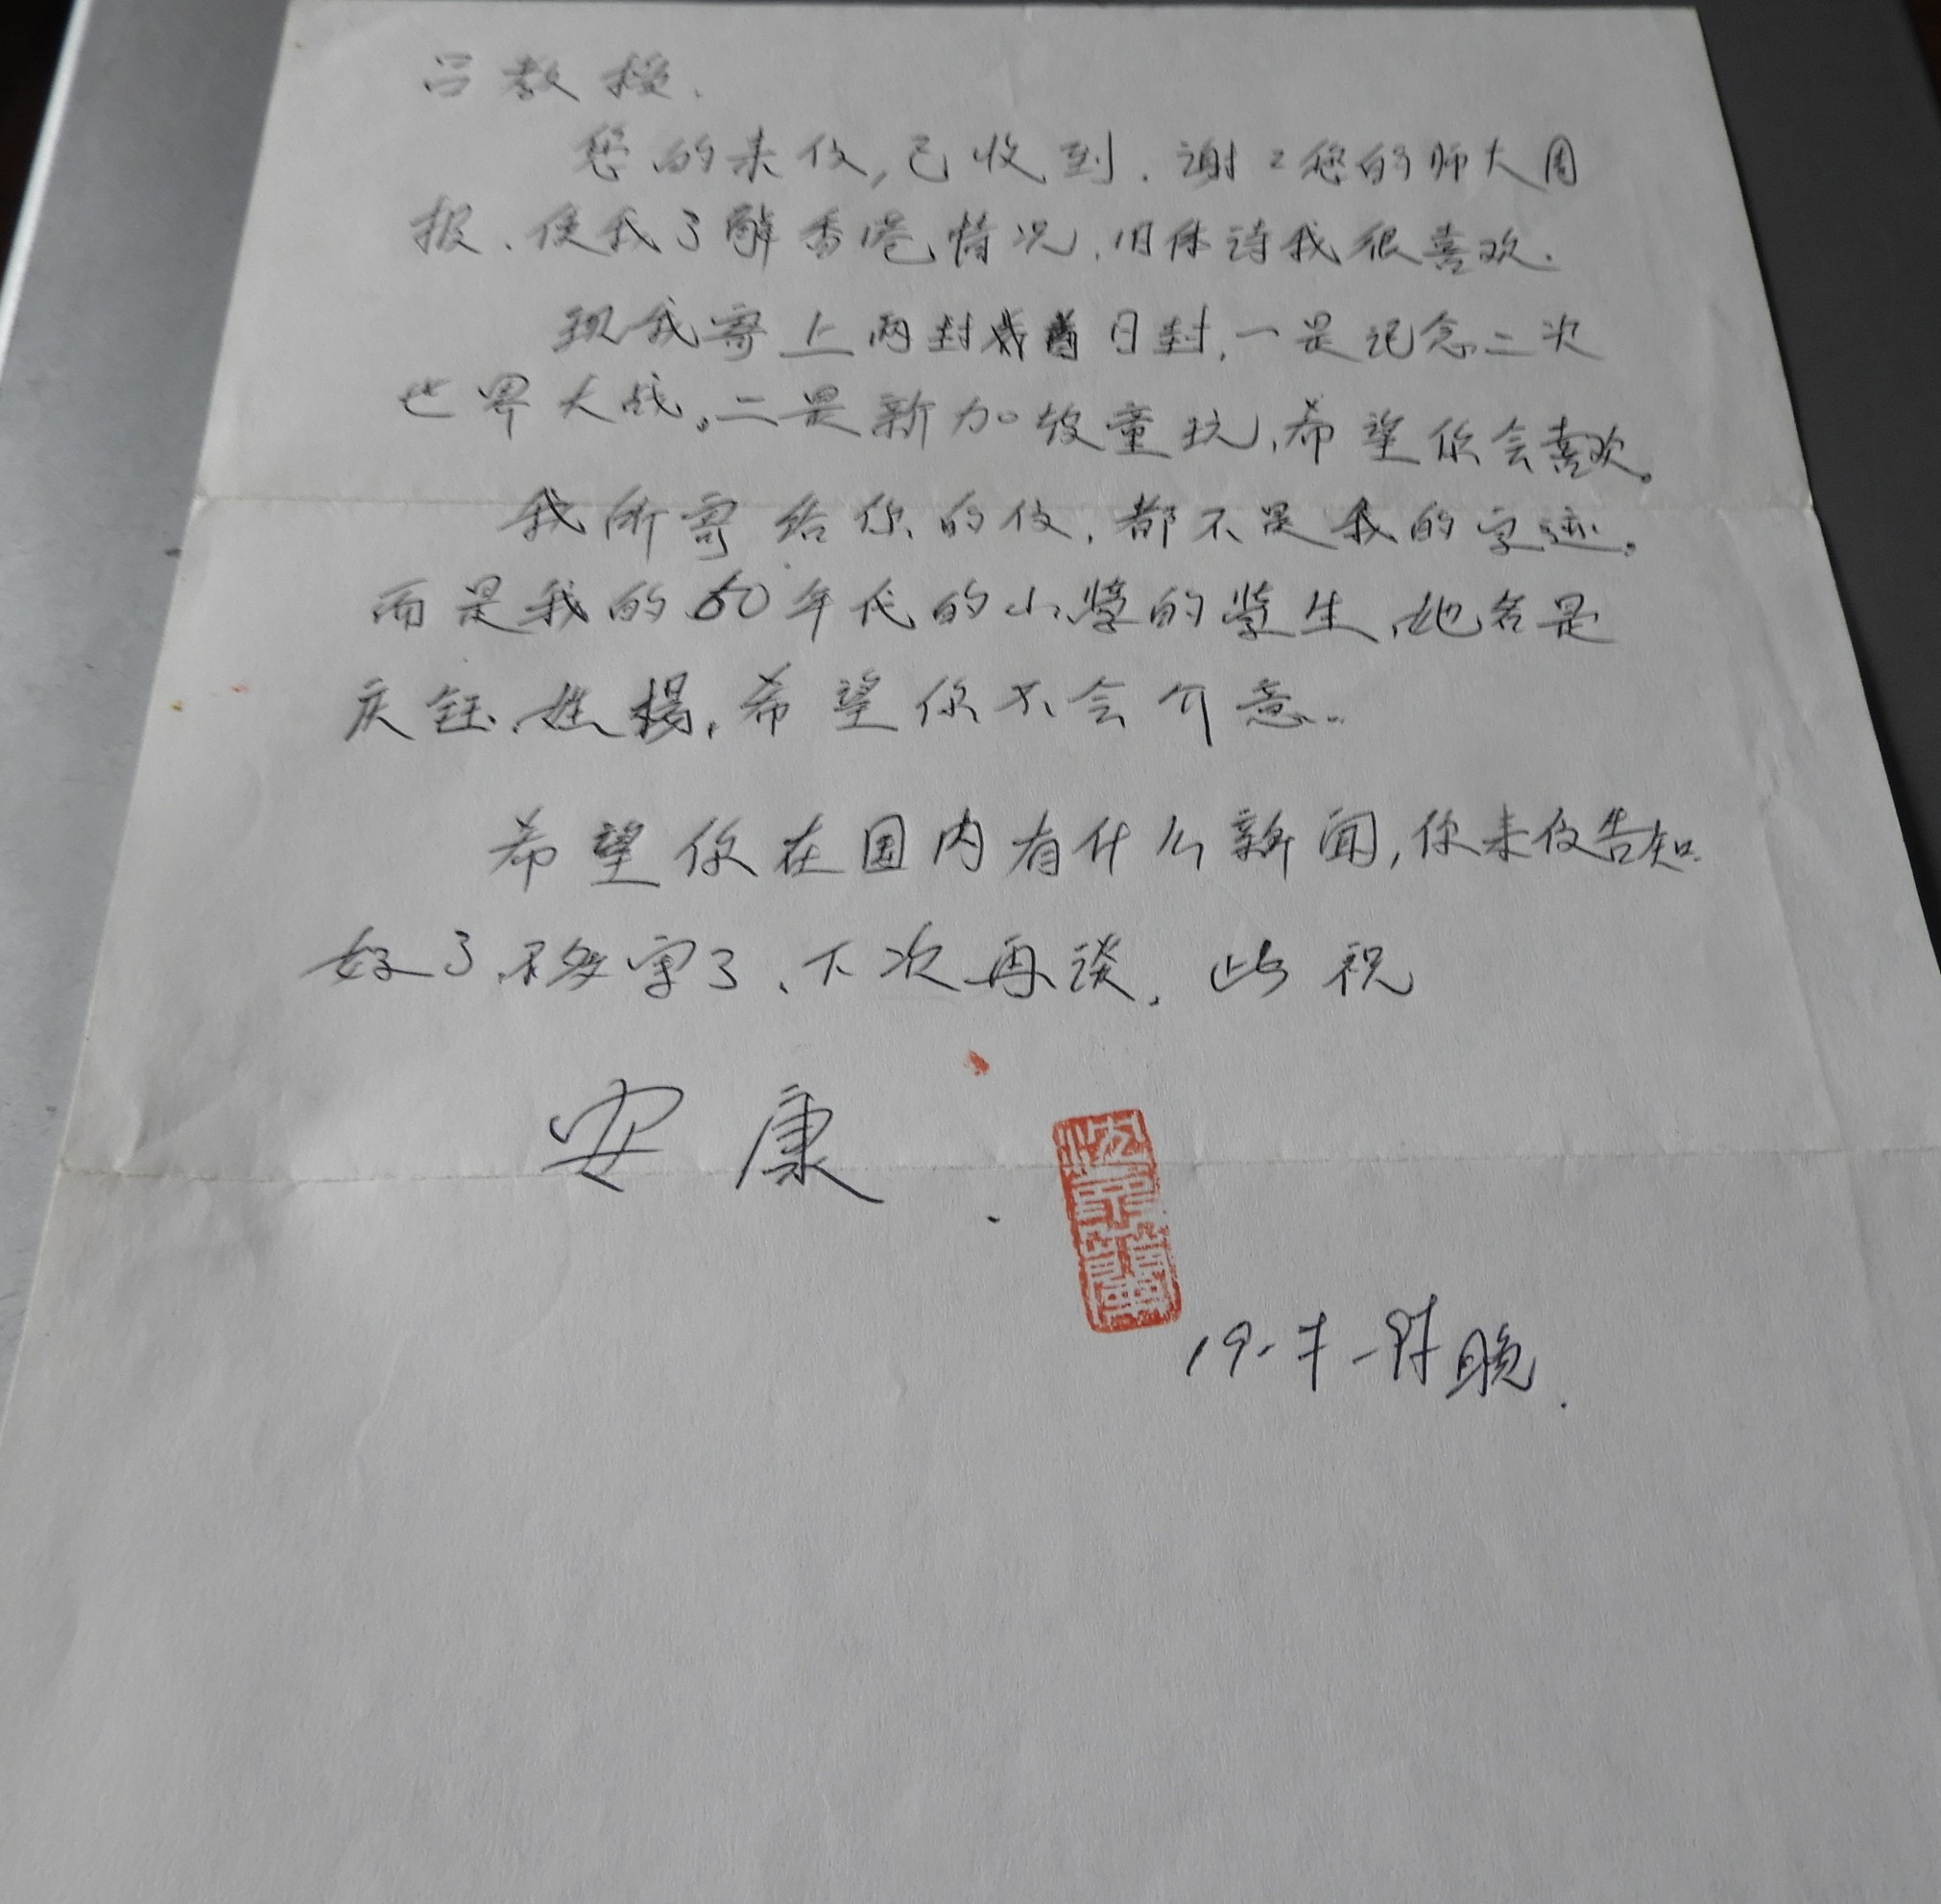 吕教授.
您的来信,已收到.谢々您的师大周
报、使我了解香港情况,旧体诗我很喜欢.
现我寄上两封首日封,一是纪念二次
世界大战。二是新加坡童玩,希望你会喜欢。
我所寄给你的信,都不是我的字迹。
而是我的60年代的小学的学生,她名是
庆钰、姓楊,希望你不会介意..
希望你在国内有什么新闻,你来信告知
好了,不多写了、下次再谈.此祝
安康.
19- -95晚.